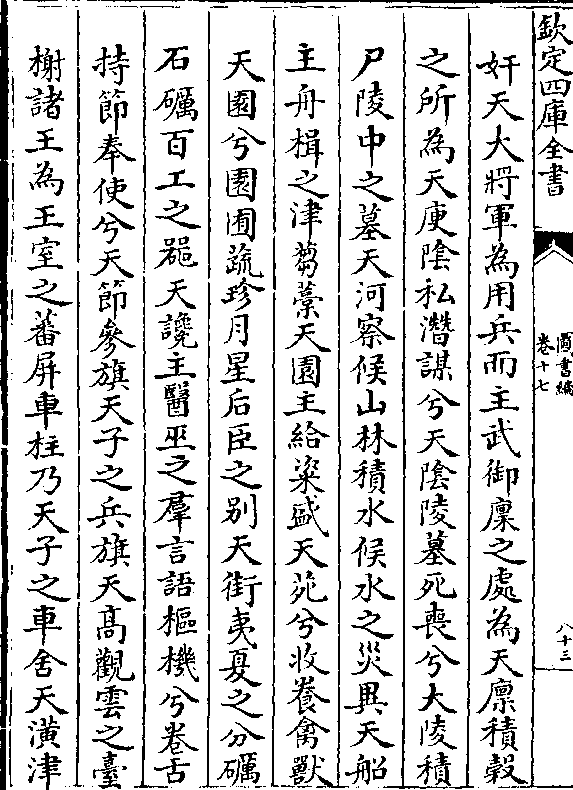 欽定四庫全書
圖書編
卷十七
八十三
奸天大將軍為用兵而主武御廪之處為天廪積穀
之所為天庾陰私潛謀兮天陰陵墓死喪兮大陵積
尸陵中之墓天河察候山林積水候水之災異天船
主舟楫之津蒭藁天園主給粢盛天苑兮收養禽獸
天園兮園囿蔬珍月星后臣之别天街夷夏之分礪
石礪百工之噐天讒主醫巫之羣言語樞機兮卷舌
持節奉使兮天節參旗天子之兵旗天髙觀雲之臺
榭諸王為王室之蕃屏車柱乃天子之車舍天潢津